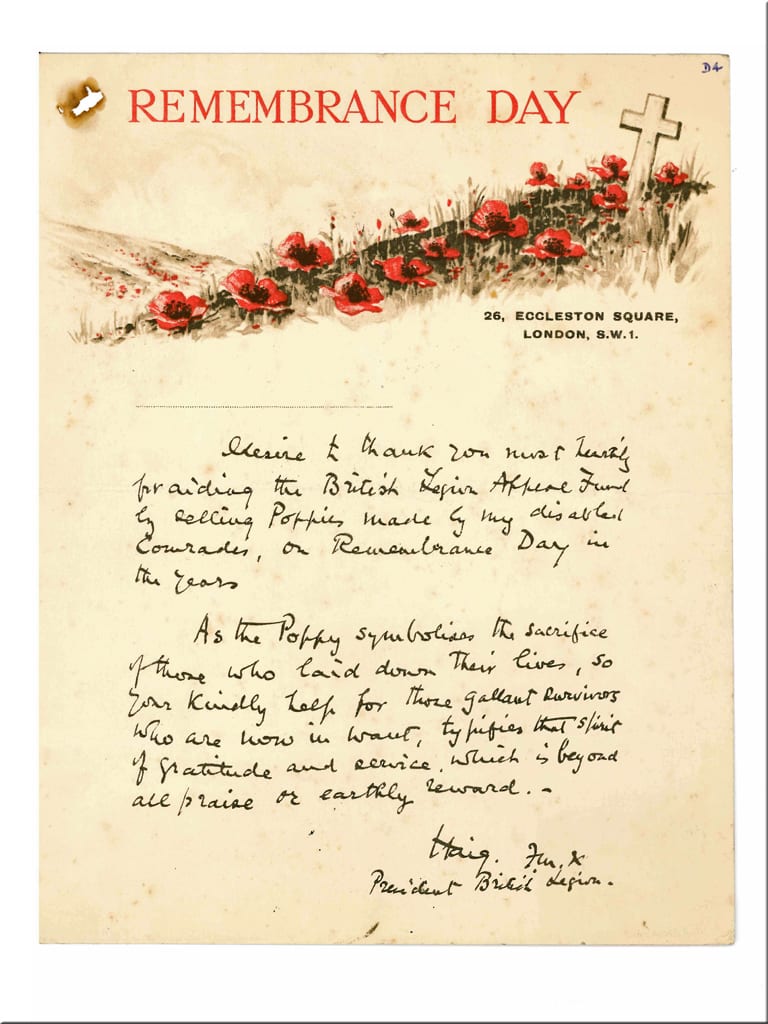 D4
REMEMBRANCE DAY
26, ECCLESTON SQUARE,
LONDON, S.W.1.
I desire to thank you most heartily
for aiding the British Legion Appeal Fund
by selling Poppies made by my disabled
Comrades, on Remembrance Day in
the years
As the Poppy symbolises the sacrifice
of those who laid down their lives, so
your kindly help for those gallant survivors
who are now in want, typifies that spirit
of gratitude and service, which is beyond
all praise or earthly reward. –
Haig. F.M.
President British Legion.